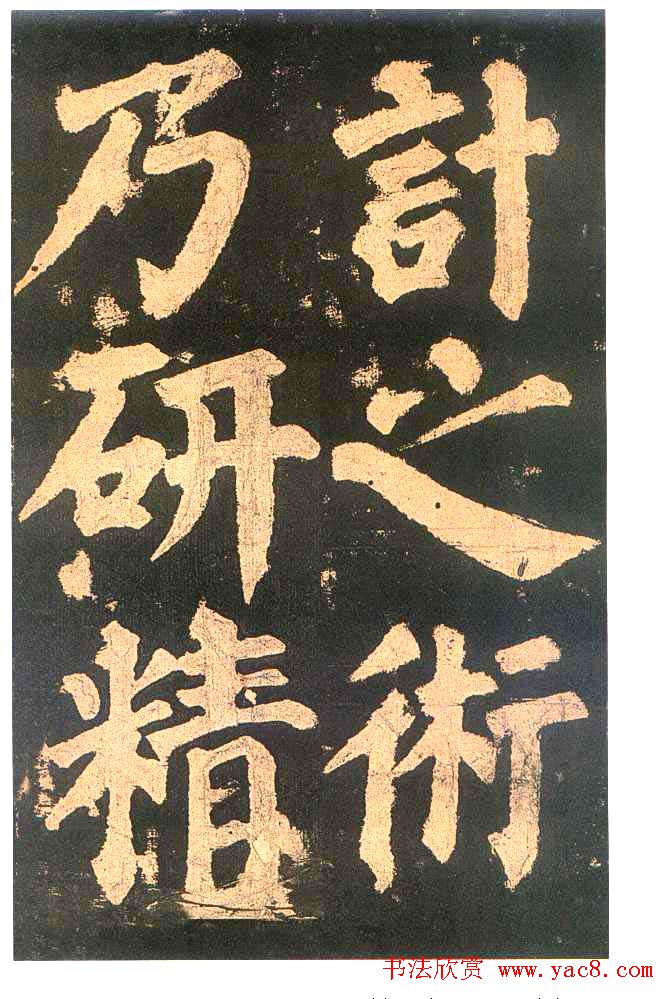 計之術
乃研精
书法欣赏 www.yac8.com